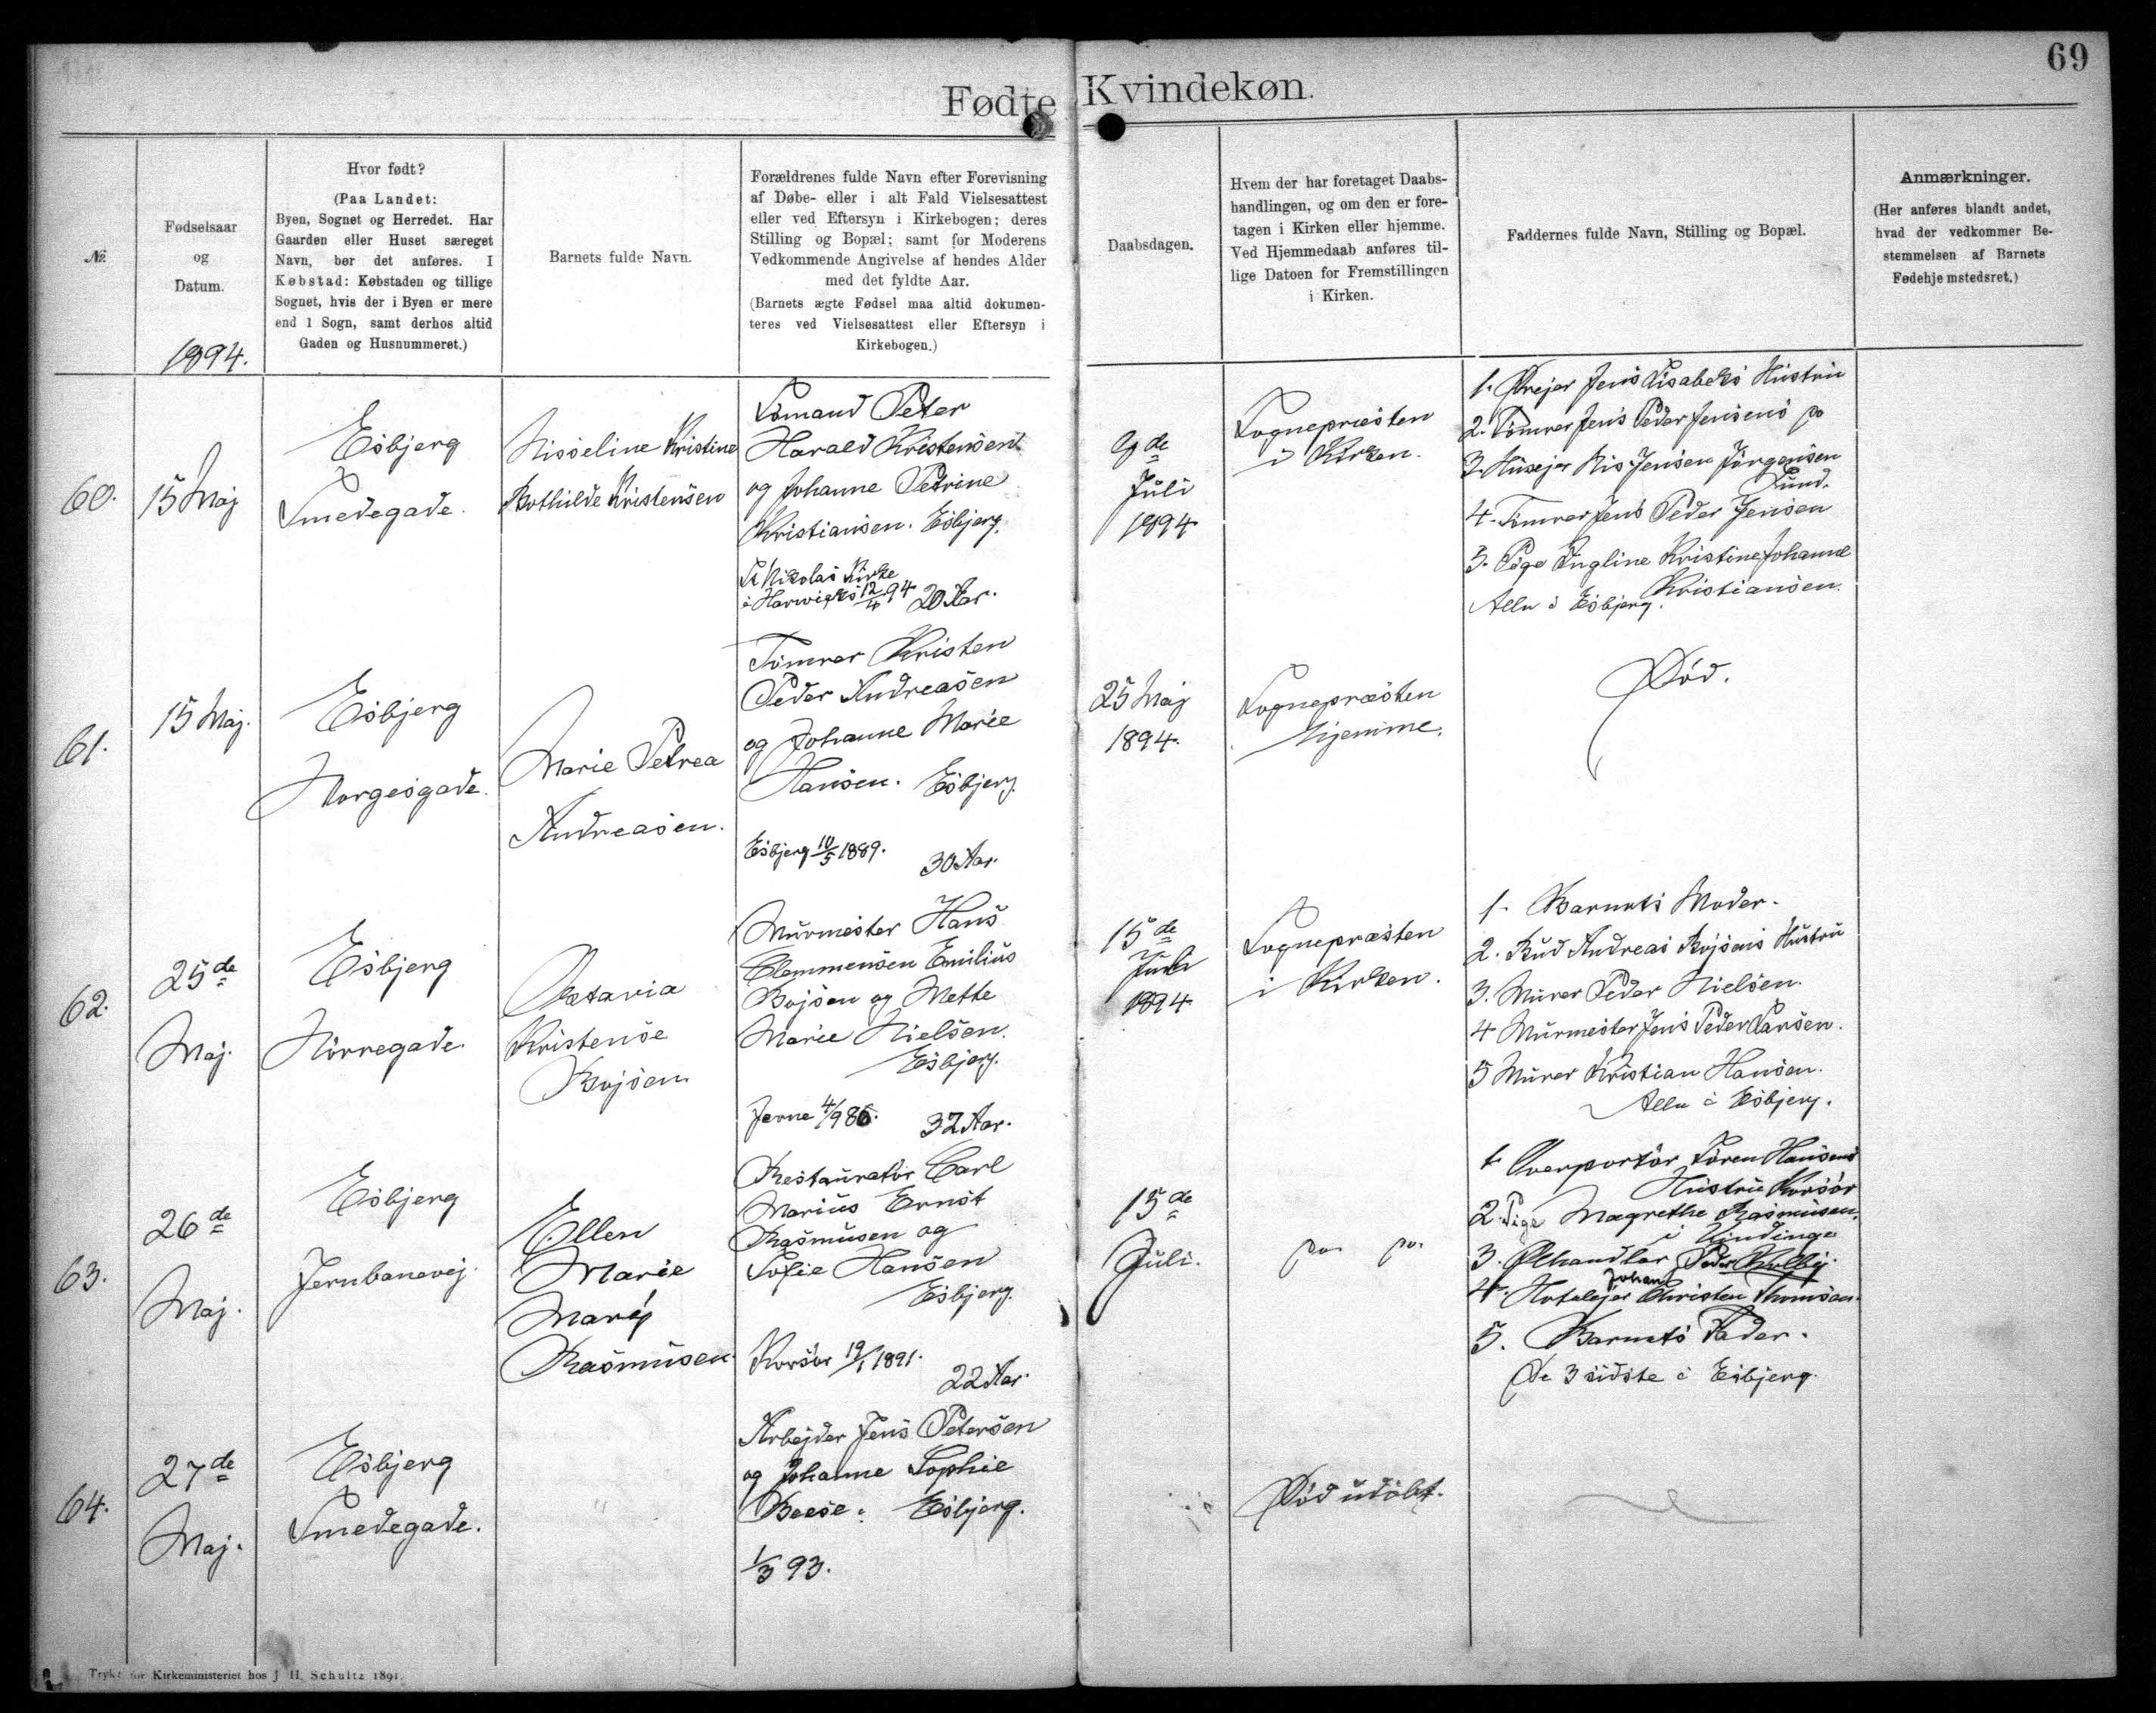 69
Fødte Kvindekøn.
№.
Fødselsaar
og
Datum.
1894.
Hvor født?
(Paa Landet:
Byen, Sognet og Herredet. Har
Gaarden eller Huset særeget
Navn, bør det anføres. I
Købstad: Købstaden og tillige
Sognet, hvis der i Byen er mere
end 1 Sogn, samt derhos altid
Gaden og Husnummeret.)
Barnets fulde Navn.
Forældrenes fulde Navn efter Forevisning
af Døbe- eller i alt Fald Vielsesattest
eller ved Eftersyn i Kirkebogen; deres
Stilling og Bopæl; samt for Moderens
Vedkommende Angivelse af hendes Alder
med det fyldte Aar.
(Barnets ægte Fødsel maa altid dokumen-
teres ved Vielsesattest eller Eftersyn i
Kirkebogen.)
Daabsdagen.
Hvem der har foretaget Daabs-
handlingen, og om den er fore-
tagen i Kirken eller hjemme.
Ved Hjemmedaab anføres til-
lige Datoen for Fremstillingen
i Kirken.
Faddernes fulde Navn, Stilling og Bopæl.
Anmærkninger.
(Her anføres blandt andet,
hvad der vedkommer Be-
stemmelsen af Barnets
Fødehjemstedsret.)
60.
15 Maj
Esbjerg
Smedegade.
Nisseline Kristine
Bothilde Kristensen
Sømand Peter
Harald Kristensen
og Johanne Petrine
Kristiansen. Esbjerg.
St Nikolas Kirke
i Harwich 12/4 94 20 Aar.
Juli
1894
Sognepræsten
i Kirken.
1. Drejer Jens Hustru
2. Tømrer Jens Peder Jensens do
3. Husejer Nis Jensen Jörgensen
Lund.
4. Tømrer Jens Peder Jensen
3. Pige Ingline Kristine Johanne
Kristiansen.
Alle i Esbjerg.
61.
15 Maj.
Esbjerg
Norgesgade.
Marie Petrea
Andreasen.
Tømrer Kristen
Peder Andreasen
og Johanne Marie
Hansen. Esbjerg.
Esbjerg 10/5 1889. 30 Aar.
25 Maj
1894.
Sognepræsten
hjemme.
Död.
62.
25de
Maj.
Esbjerg
Nörregade.
Oktavia
Kristense
Bojsen
Murmester Hans
Clemmensen Emilius
Bojsen og Mette
Marie Nielsen.
Esbjerg.
Jerne 4/9 86. 32 Aar.
15de
Juli
1894
Sognepræsten
i Kirken.
1. Barnets Moder.
2. Bud Andreas Bojsens Hustru
3. Murer Peder Nielsen.
4 Murmester Jens Peder Larsen.
5 Murer Kristian Hansen.
Alle i Esbjerg.
63.
26de
Maj.
Esbjerg
Jernbanevej.
Ellen
Marie
Rasmusen
Restauratör Carl
Marius Ernst
Rasmusen og
Sofie Hansen
Esbjerg.
Korsör 19/1 1891.
22 Aar.
15de
Juli.
do do
1. Overportör Sören Hansens
Hustru Korsör
2. Pige Magrethe Rasmusen
i Vindinge
3. Ølhandler Peder Kolbÿ.
Johan
4. Hotelejer Christen Thomsen.
5. Barnets Fader.
De 3 sidste i Esbjerg.
64.
27de
Maj.
Esbjerg
Smedegade.
Arbejder Jens Petersen
og Johanne Sophie
Beese. Esbjerg.
1/3 93.
Död udöbt.
Trykt for Kirkeministeriet hos J. H. Schultz 1891.